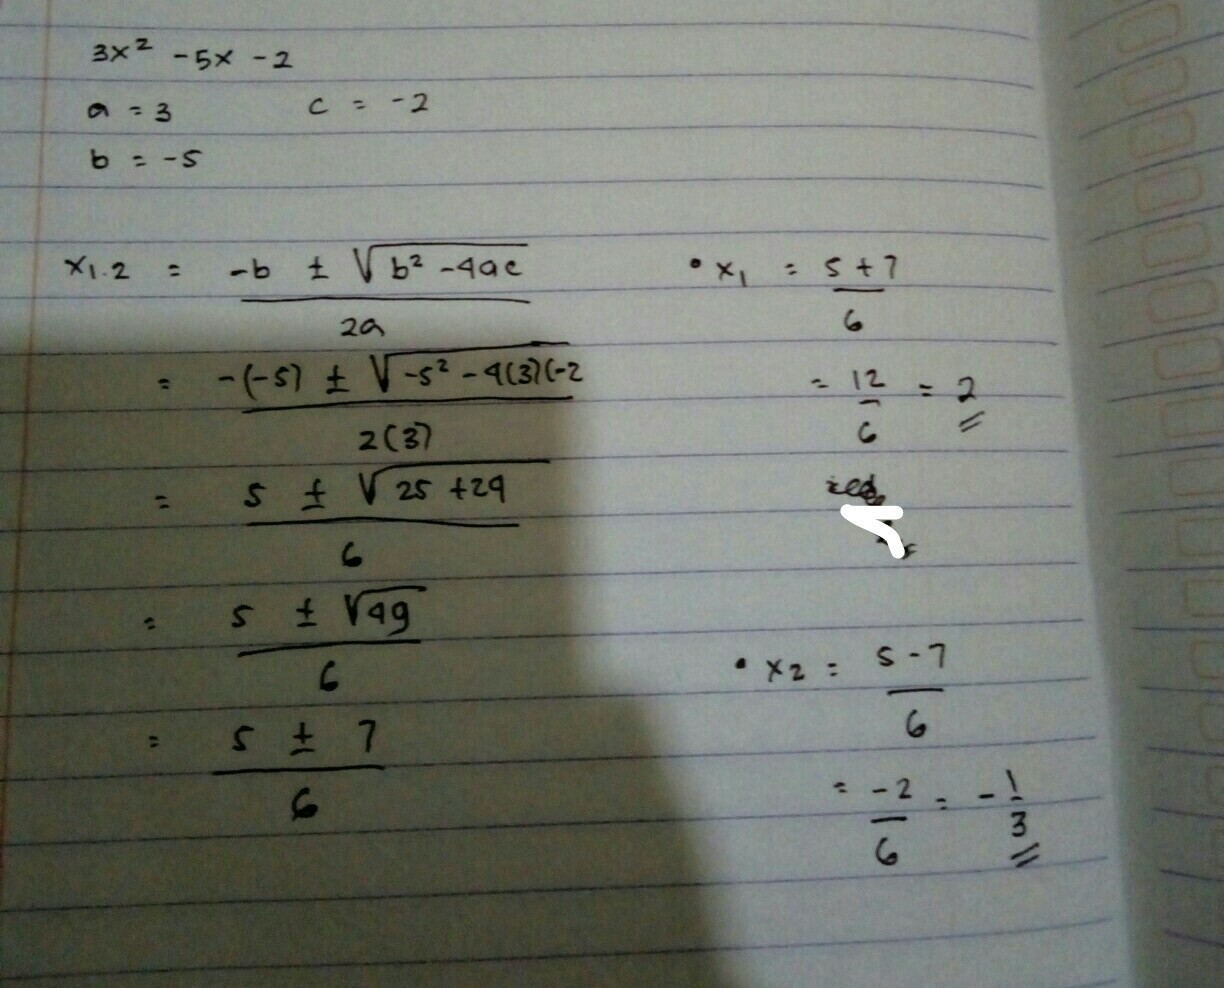 3x² - 5x - 2
a = 3 c = -2
b = -5
x₁.₂ = -b ± √b² - 4ac
2a
= -(-5) ± √-5² - 4(3)(-2
2(3)
= 5 ± √25 + 24
6
= 5 ± √49
6
= 5 ± 7
6
• x₁ = 5 + 7
6
= 12 = 2
6
• x₂ = 5 - 7
6
= -2 = -1
6 3